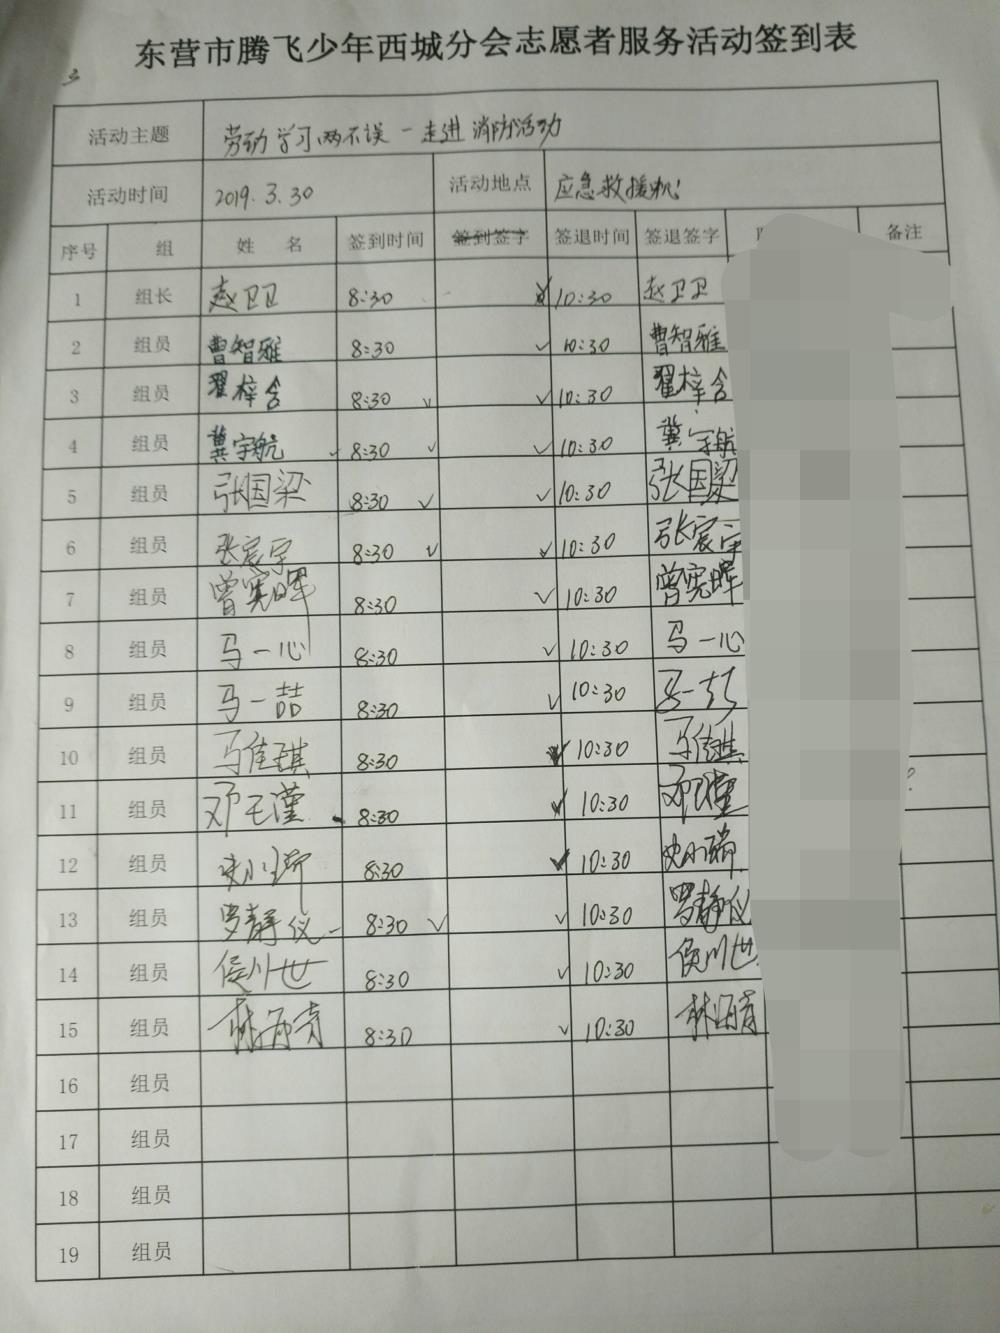 东营市腾飞少年西城分会志愿者服务活动签到表
3
活动主题 劳动学习两不误-走进消防活动
活动时间 2019.3.30 活动地点 应急救援
序号 组 姓名 签到时间 签到签字 签退时间 签退签字 备注
1 组长 赵卫卫 8:30 10:30 赵卫卫
2 组员 曹智雅 8:30 √ 10:30 曹智雅
3 组员 翟梓含 8:30 √ √ 10:30 翟梓含
4 组员 冀宇航 √ 8:30 √ √ 10:30 冀宇航
5 组员 张国梁 8:30 √ √ 10:30 张国梁
6 组员 张宸宇 8:30 √ √ 10:30 张宸宇
7 组员 曾宪晖 8:30 √ 10:30 曾宪晖
8 组员 马一心 8:30 √ 10:30 马一心
9 组员 马一喆 8:30 √ 10:30 马一
10 组员 马佳琪 8:30 √ 10:30 马佳琪
11 组员 邓 8:30 √ 10:30 邓
12 组员 史小 8:30 √ 10:30 史小
13 组员 罗静仪 8:30 √ √ 10:30 罗静仪
14 组员 侯川世 8:30 √ 10:30 侯川世
15 组员 林海青 8:30 √ 10:30 林海青
16 组员
17 组员
18 组员
19 组员